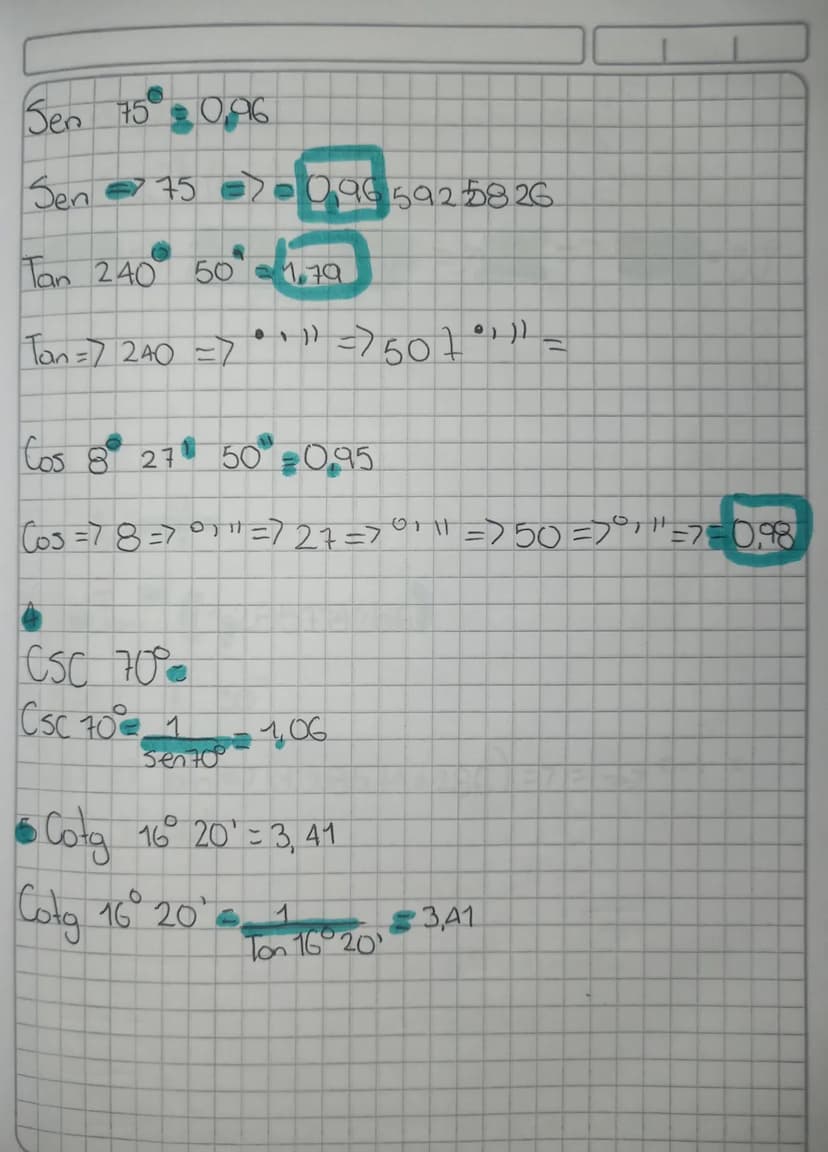 Sen 75° = 0,96
Sen => 75 => = 0,965925826
Tan 240° 50' = 1.79
Tan => 240 => ° ' '' => 50 ° ' '' =
Cos 8° 27' 50'' = 0,95
Cos => 8 => ° ' '' => 27 => ° ' '' => 50 => ° ' '' => = 0,98
4
CSC 70° =
Csc 70° = 1 / sen 70° = 1,06
5 Cotg 16° 20' = 3,41
Cotg 16° 20' = 1 / Tan 16° 20' = 3,41